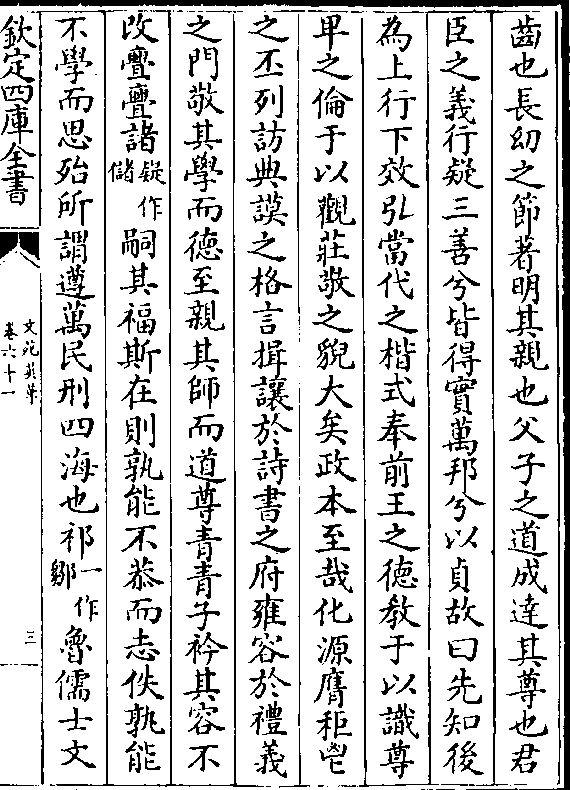 齒也長幼之節著明其親也父子之道成達其尊也君
臣之義行疑三善兮皆得實萬邦兮以貞故曰先知後
為上行下效引當代之楷式奉前王之德教于以識尊
卑之倫于以觀莊敬之貌大矣政本至哉化源膺秬鬯
之丕列訪典謨之格言揖讓於詩書之府雍容於禮義
之門敬其學而德至親其師而道尊青青子衿其容不
改亹亹諸疑作儲嗣其福斯在則孰能不恭而志佚孰能
不學而思殆所謂遵萬民刑四海也祁一作鄒魯儒士文
欽定四庫全書
文苑英華
卷六十一
三